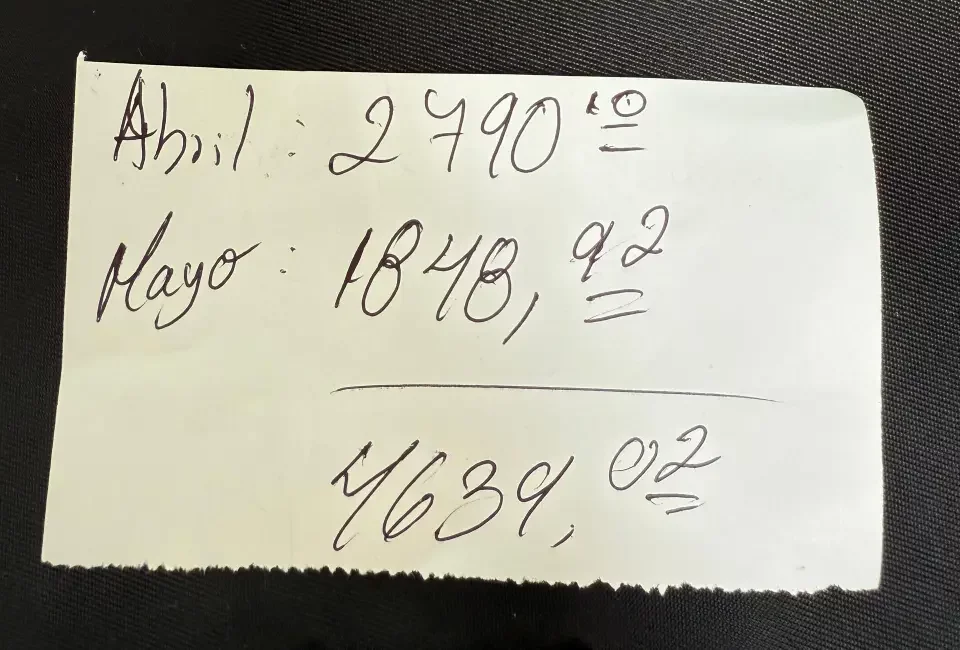 Abril: 2790 10
Mayo: 1848, 92
4639, 02